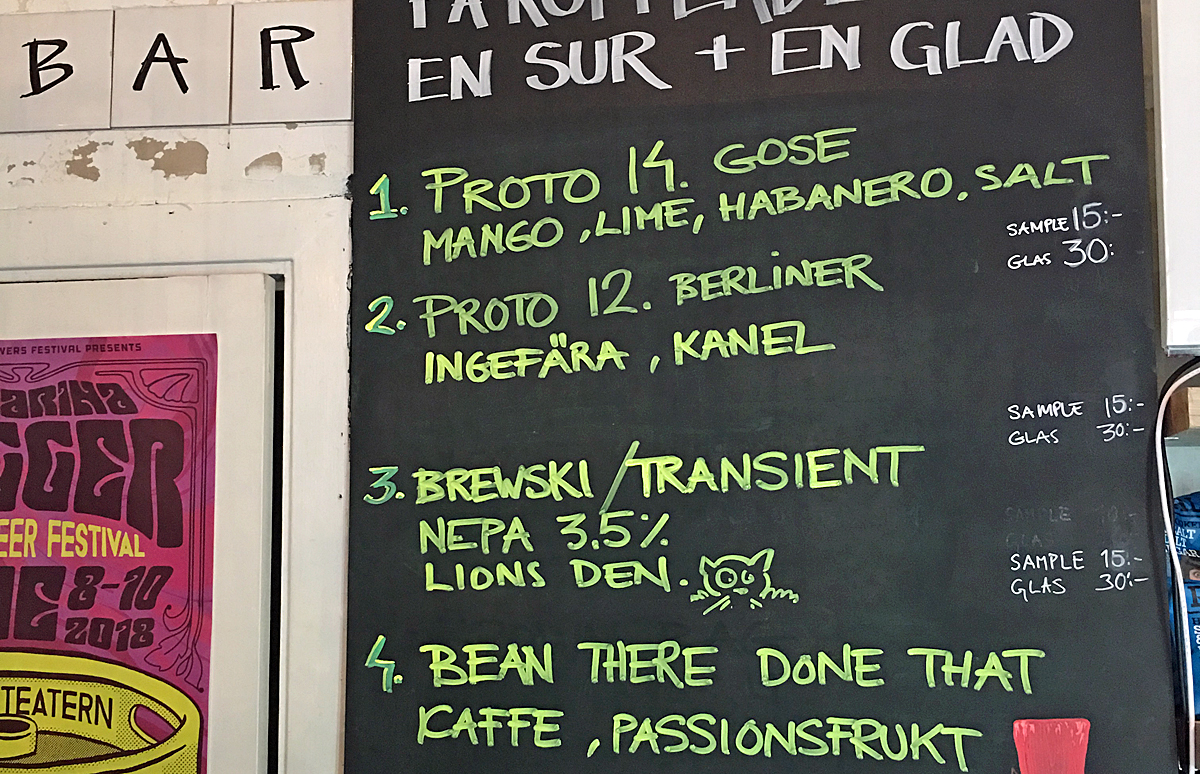 BAR
EN SUR + EN GLAD
1. PROTO 14. GOSE
MANGO, LIME, HABANERO, SALT
SAMPLE 15:-
GLAS 30:
2. PROTO 12. BERLINER
INGEFÄRA, KANEL
SAMPLE 15:-
GLAS 30:-
3. BREWSKI/TRANSIENT
NEPA 3.5%
LIONS DEN.
SAMPLE 15:-
GLAS 30:-
4. BEAN THERE DONE THAT
KAFFE, PASSIONSFRUKT
WERS FESTIVAL PRESENTS
ARINA
GGER
EER FESTIVAL
NE 8-10
2018
TEATERN